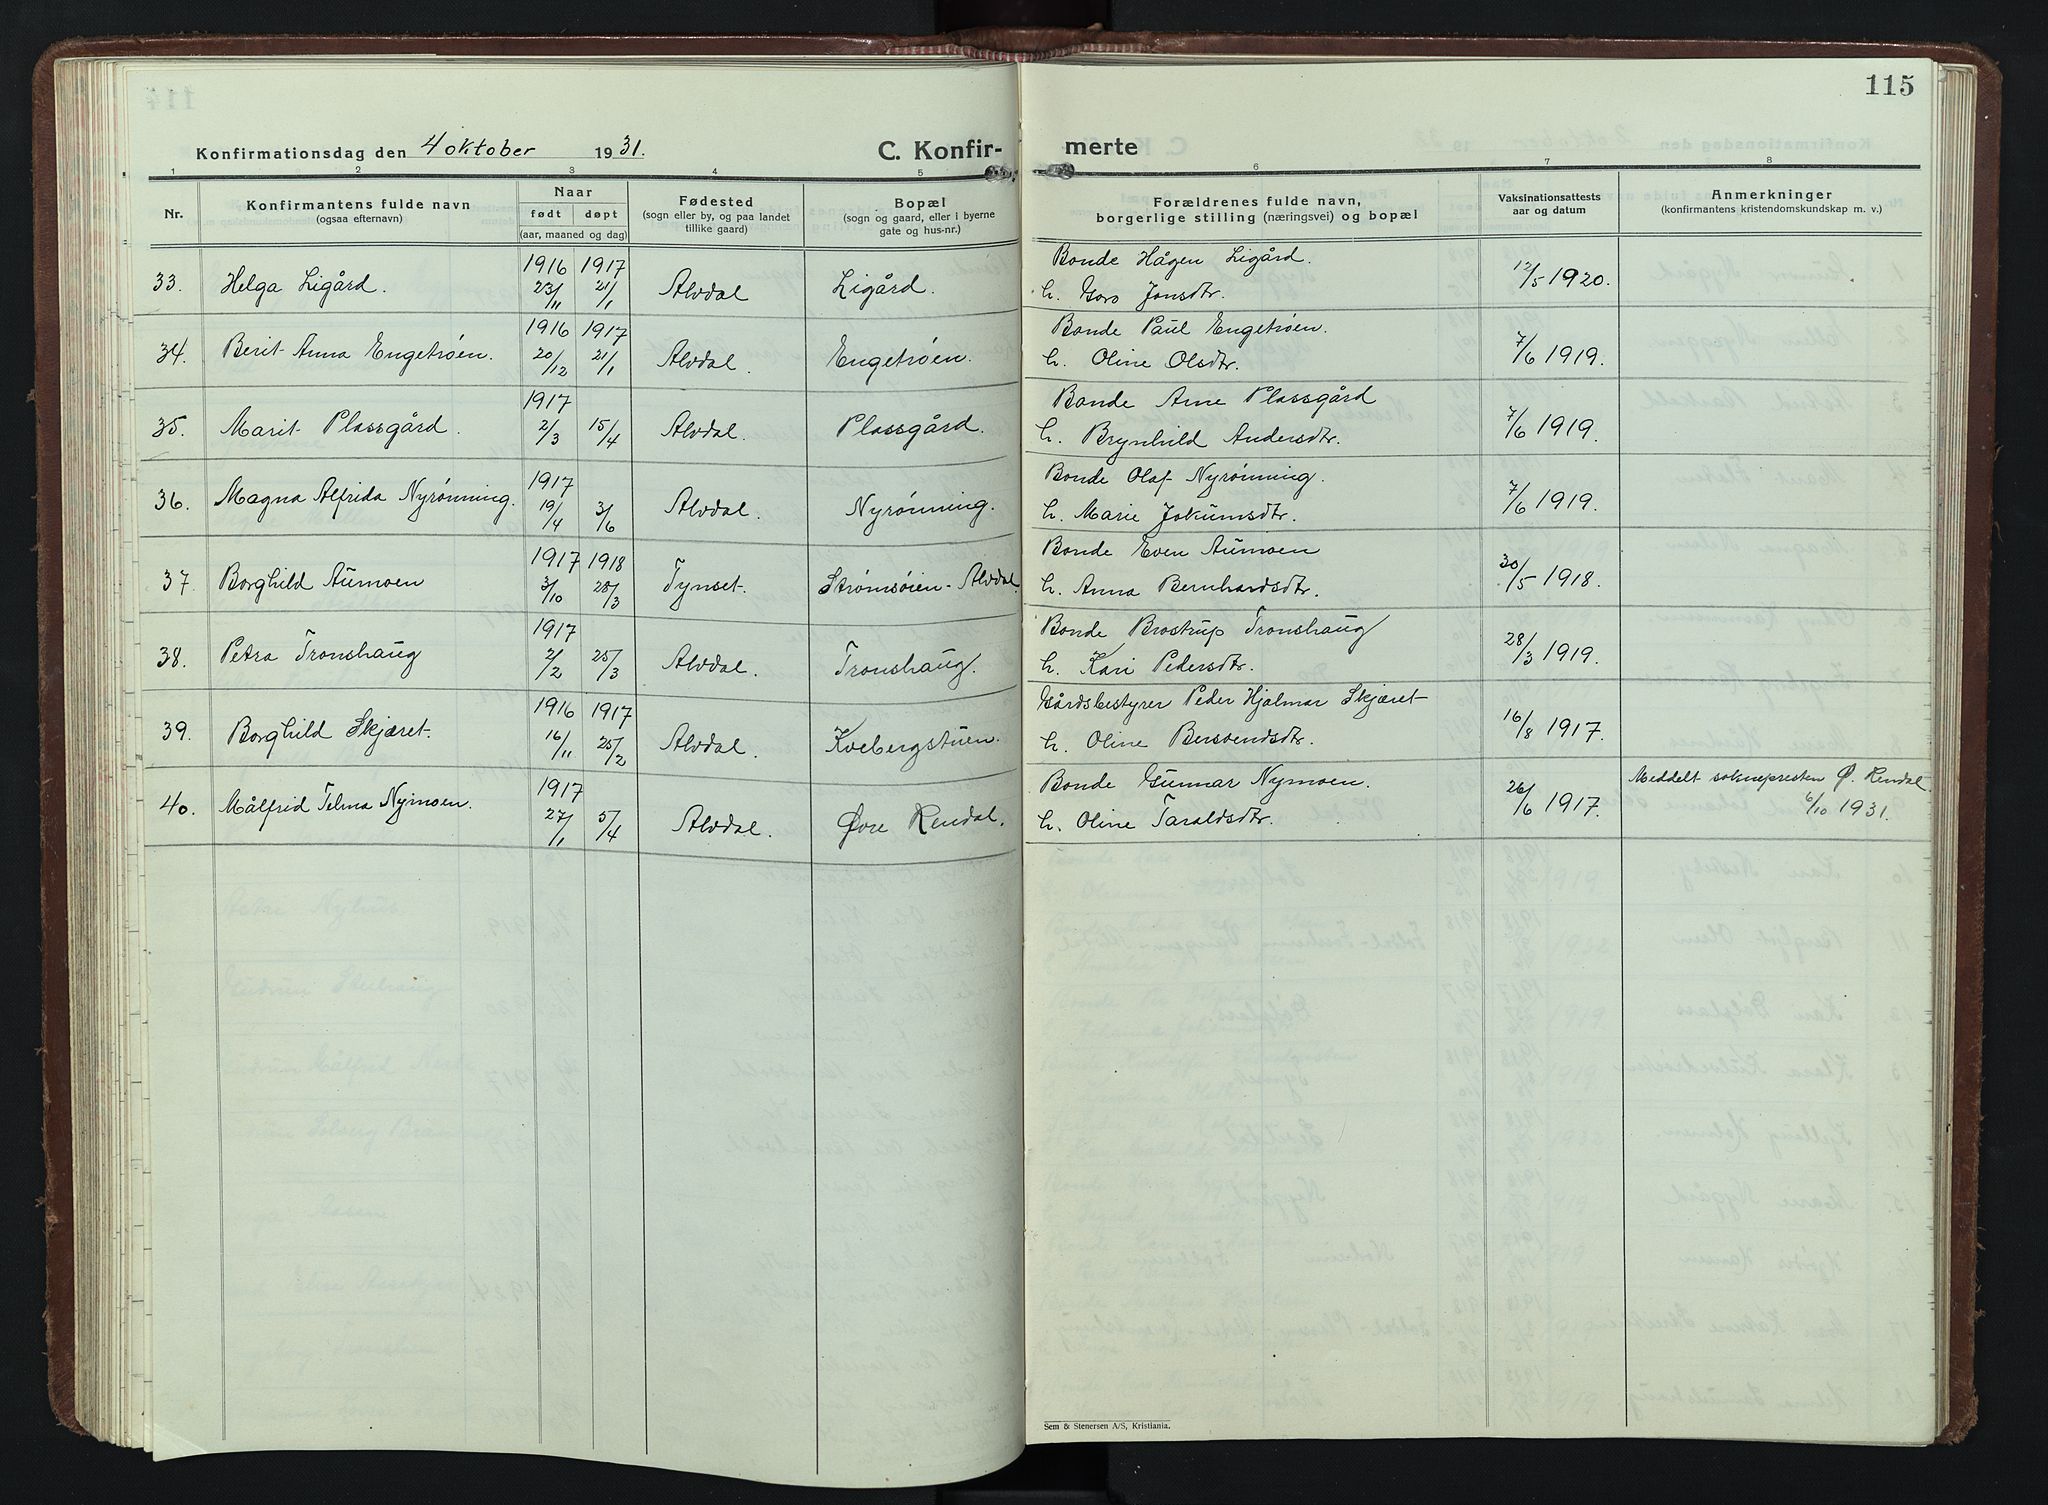 115
Konfirmationsdag den 4 oktober 1931.
C. Konfir-
merte
1 2 3 4 5 6 7 8
Nr.
Konfirmantens fulde navn
(ogsaa efternavn)
Naar
født døpt
(aar, maaned og dag)
Fødested
(sogn eller by, og paa landet
tillike gaard)
Bopæl
(sogn og gaard, eller i byerne
gate og hus-nr.)
Forældrenes fulde navn,
borgerlige stilling (næringsvei) og bopæl
Vaksinationsattests
aar og datum
Anmerkninger
(konfirmantens kristendomskundskap m. v.)
1916 1917 Bonde Hågen Ligård.
33. Helga Ligård. 23/11 21/1 Alvdal Ligård. h. Goro Jonsdtr. 12/5 1920.
1916 1917 Bonde Paul Engetrøen.
34. Berit Anna Engetrøen. 20/12 21/1 Alvdal. Engetrøen. h. Oline Olsdtr. 7/6 1919.
1917 Bonde Arne Plassgård
35. Marit Plassgård. 2/3 15/4 Alvdal. Plassgård. h. Brynhild Andersdtr. 7/6 1919.
1917 Bonde Olaf Nyrønning.
36. Magna Alfrida Nyrønning. 19/4 3/6 Alvdal. Nyrønning. h. Marie Jokumsdtr. 7/6 1919.
1917 1918 Bonde Even Aumoen
37. Borghild Aumoen 3/10 28/3 Tynset. Strømsøien - Alvdal. h. Anna Bernhardsdtr. 30/5 1918.
1917 Bonde Brostrup Tronshaug
38. Petra Tronshaug 2/2 25/3 Alvdal. Tronshaug. h. Kari Pedersdtr. 28/3 1919.
1916 1917 Gårdsbestyrer Peder Hjalmar Skjæret
39. Borghild Skjæret. 16/11 25/2 Alvdal. Kvebergstuen. h. Oline Bersvendsdtr. 16/8 1917.
1917 Bonde Gunnar Nymoen. Meddelt soknepresten Ø. Rendal
40. Målfrid Telma Nymoen. 27/1 5/4 Alvdal. Øvre Rendal. h. Oline Taraldsdtr. 26/6 1917. 6/10 1931.
Sem & Stenersen A/S, Kristiania.